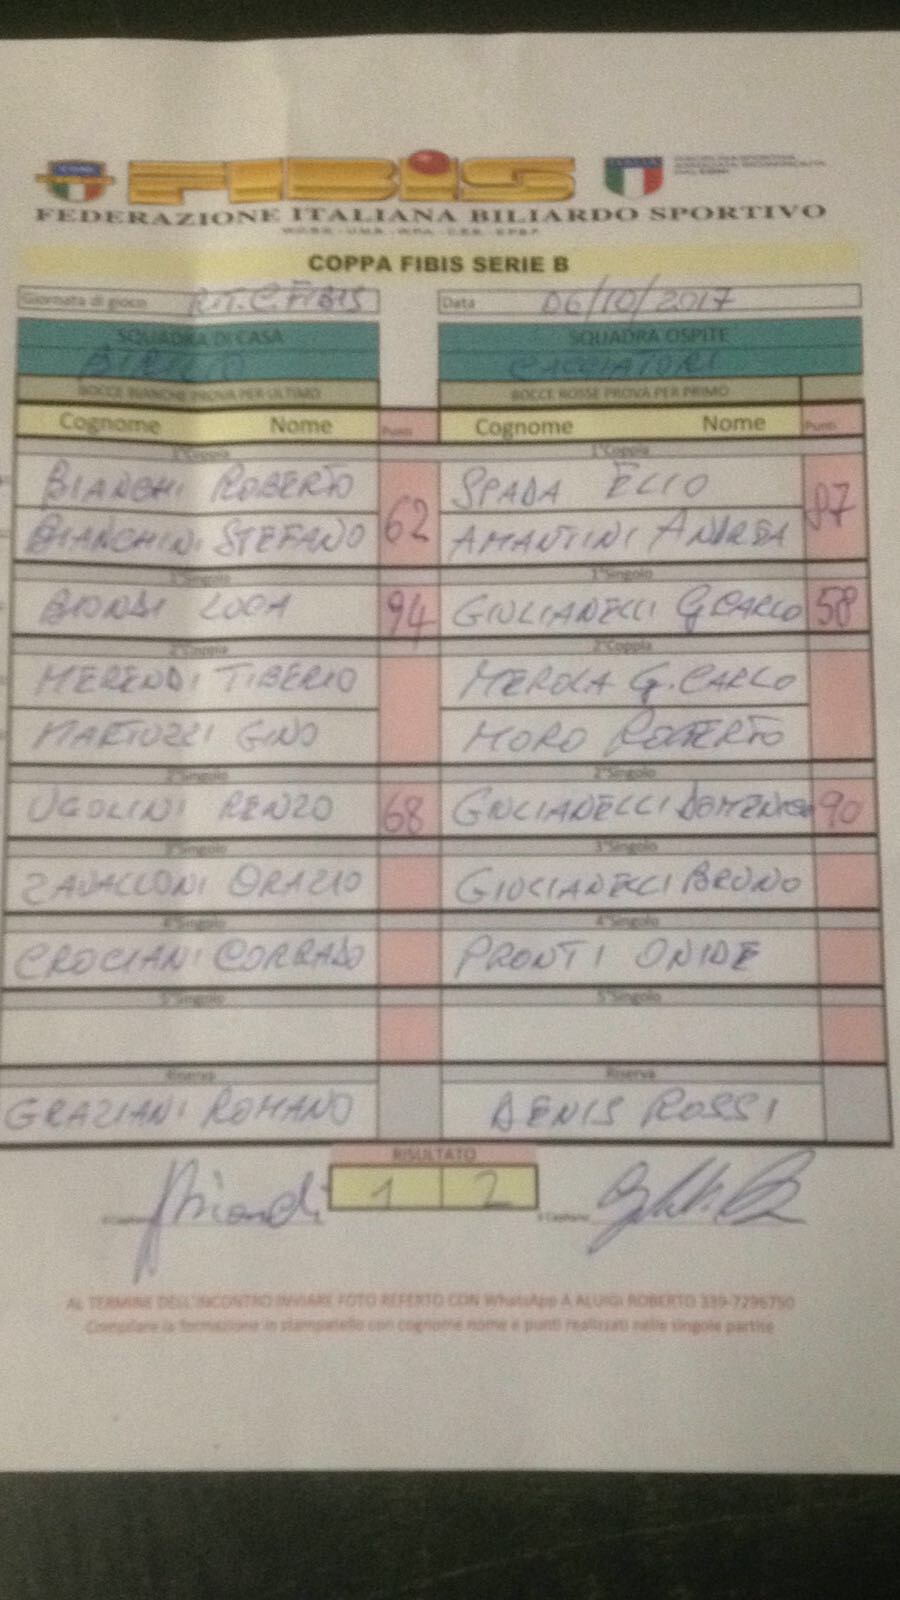 FIBIS
FEDERAZIONE ITALIANA BILIARDO SPORTIVO
COPPA FIBIS SERIE B
Giornata di gioco R.T.C. FIBIS Data 06/10/2017
SQUADRA DI CASA SQUADRA OSPITE
BIRILLO CACCIATORI
BOCCE BIANCHE PROVA PER ULTIMO BOCCE ROSSE PROVA PER PRIMO
Cognome Nome Punti Cognome Nome Punti
1°Coppia 1°Coppia
BIANCHI ROBERTO 62 SPADA ELIO 87
BIANCHINI STEFANO AMANTINI ANDREA
1°Singolo 1°Singolo
BIONDI LUCA 94 GIULIANELLI G.CARLO 58
2°Coppia 2°Coppia
MERENDI TIBERIO MEROLA G.CARLO
MARTUZZI GINO MORO ROBERTO
2°Singolo 2°Singolo
UGOLINI RENZO 68 GIULIANELLI DOMENICO 90
3°Singolo 3°Singolo
ZAVALLONI ORAZIO GIULIANELLI BRUNO
4°Singolo 4°Singolo
CROCIANI CORRADO PRONTI ONIDE
5°Singolo 5°Singolo
Riserva Riserva
GRAZIANI ROMANO DENIS ROSSI
RISULTATO
1 2
Il Capitano
AL TERMINE DELL'INCONTRO INVIARE FOTO REFERTO CON WhatsApp A ALUIGI ROBERTO 339-7296750
Compilare la formazione in stampatello con cognome nome e punti realizzati nelle singole partite